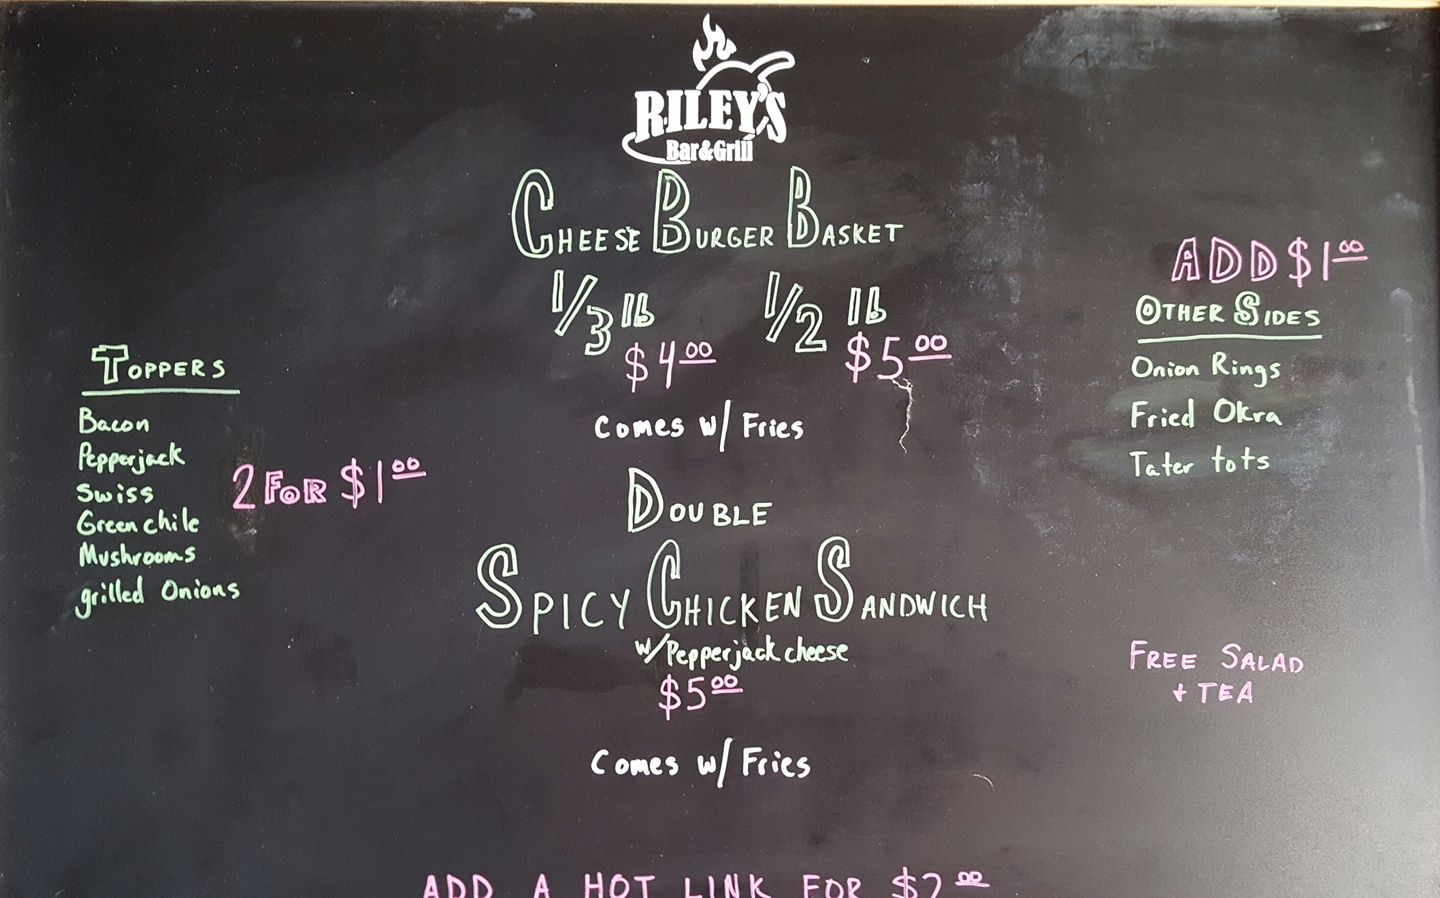 RILEY'S
Bar&Grill
CHEESE BURGER BASKET
1/3 lb 1/2 lb
$4.00 $5.00
Comes w/ Fries
DOUBLE
SPICY CHICKEN SANDWICH
w/Pepperjack cheese
$5.00
Comes w/ Fries
TOPPERS
Bacon
Pepperjack
Swiss
Green chile
Mushrooms
grilled Onions
2 FOR $1.00
ADD $1.00
OTHER SIDES
Onion Rings
Fried Okra
Tater tots
FREE SALAD
+ TEA
ADD A HOT LINK FOR $2.00